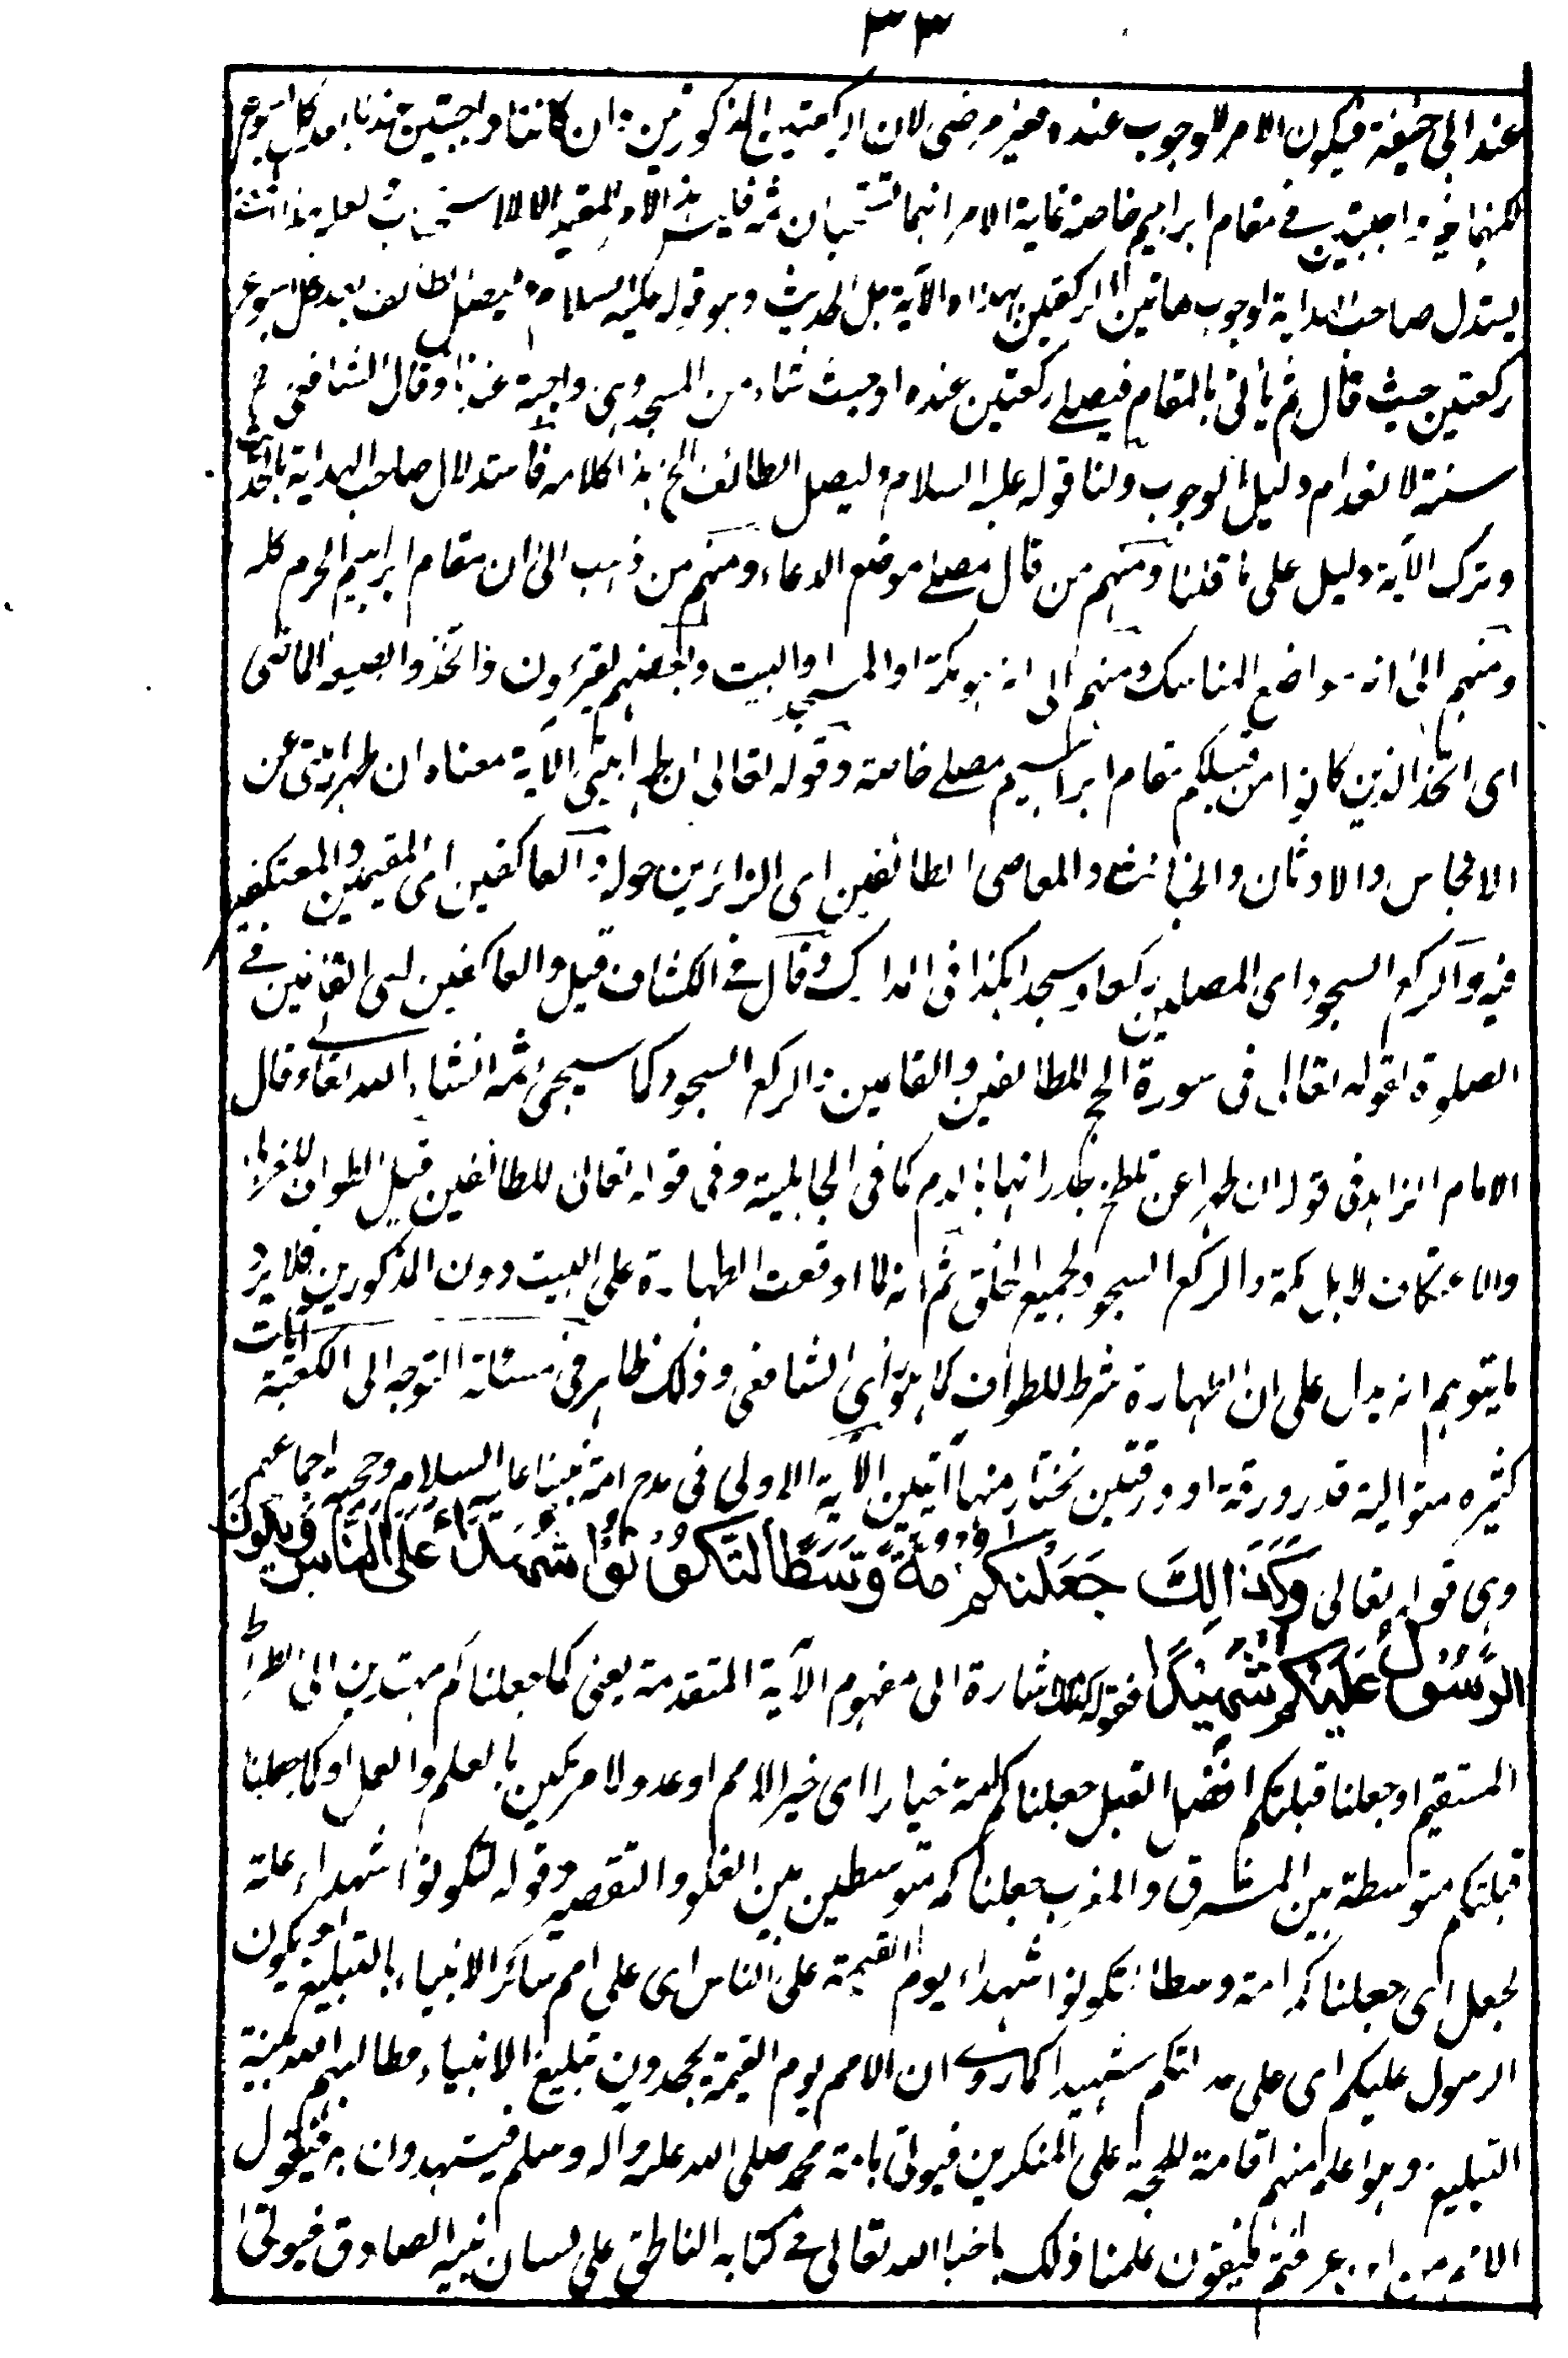 ٣٣
عند ابی حنیفة فیکون الامر للوجوب عنده وغیر مرضی لان الرکعتین المذکورتین وان کانتا واجبتین عندنا بعد کل اسبوع
لکنهما غیر واجبتین فے مقام ابراهیم خاصة غایة الامر انهما تستحبان ثمه فلیس هذا الامر المقید الا للاستحباب
یستدل صاحب الهدایة لوجوب هاتین الرکعتین بهذه الآیة بل الحدیث وهو قوله علیه السلام ولیصل الطائف بعد کل اسبوع
رکعتین حیث قال ثم یأتی بالمقام فیصلے رکعتین عنده او حیث شاء من المسجد وهی واجبة عندنا وقال الشافعی رح
سنة لانعدام دلیل الوجوب ولنا قوله علیه السلام ولیصل الطائف الخ هذا کلامه فاستدلال صاحب الهدایة بالحدیث
وترک الآیة دلیل علی ما قلنا ومنهم من قال مصلے موضع الدعاء ومنهم من ذهب الی ان مقام ابراهیم الحرم کله
ومنهم الی انه مواضع المناسک ومنهم الی انه هو مکة او المسجد او البیت وبعضهم یقرءون واتخذوا بصیغة الماضی
ای اتخذ الذین کانوا من قبلکم مقام ابراهیم مصلے خاصة وقوله تعالی ان طهرا بیتی الآیة معناه ان طهرا بیتی عن
الانجاس والاوثان والخبائث والمعاصی للطائفین ای الزائرین حوله والعاکفین ای المقیمین والمعتکفین
فیه والرکع السجود ای المصلین رکعا وسجدا هکذا فی المدارک وقال فے الکشاف قیل والعاکفین ای القائمین فے
الصلوة لقوله تعالی فی سورة الحج للطائفین والقائمین والرکع السجود کما سیجیئ ثمه انشاء الله تعالے وقال
الامام الزاهد فی قوله ان طهرا عن تلطخ جدرانها بالدم کما فی الجاهلیة وفی قوله تعالی للطائفین قیل الطواف للغرباء
والاعتکاف لاهل مکة والرکع السجود لجمیع الخلق ثم انه لما اوقعت الطهارة علی البیت دون المذکورین فلا یرد
ما یتوهم انه یدل علی ان الطهارة شرط للطواف کما هو رأی الشافعی وذلک ظاهر وفی مسئلة التوجه الی الکعبة آیات
کثیره متوالیة قدر ورقة او ورقتین نختار منها آیتین الآیة الاولی فی مدح امة نبینا علیه السلام وحجیة اجماعهم
وهی قوله تعالی وَكَذَالِكَ جَعَلْنٰكُمْ اُمَّةً وَّسَطًا لِّتَكُوْنُوْا شُهَدَآءَ عَلَى النَّاسِ وَيَكُوْنَ
الرَّسُوْلُ عَلَيْكُمْ شَهِيْدًا فقوله کذلک اشارة الی مفهوم الآیة المتقدمة یعنی کما جعلناکم مهتدین الی الصراط
المستقیم او جعلنا قبلتکم افضل القبل جعلناکم امة خیارا ای خیر الامم او عدولا مزکین بالعلم والعمل او کما جعلنا
قبلتکم متوسطة بین المشرق والمغرب جعلناکم متوسطین بین الغلو والتقصیر وقوله لتکونوا شهداء علة
لجعل ای جعلناکم امة وسطا لتکونوا شهداء یوم القیمة علی الناس ای علی امم سائر الانبیاء بالتبلیغ او یکون
الرسول علیکم ای علی عدالتکم شهیدا کما روے ان الامم یوم القیمة یجحدون تبلیغ الانبیاء فطالبهم الله ببینة
التبلیغ وهو اعلم منهم اقامة للحجة علی المنکرین فیوتی بامة محمد صلی الله علیه وآله وسلم فیشهدون به فیقول
الامم من این عرفتم فیقولون علمنا ذلک باخبار الله تعالی فے کتابه الناطق علی لسان نبیه الصادق فیوتی